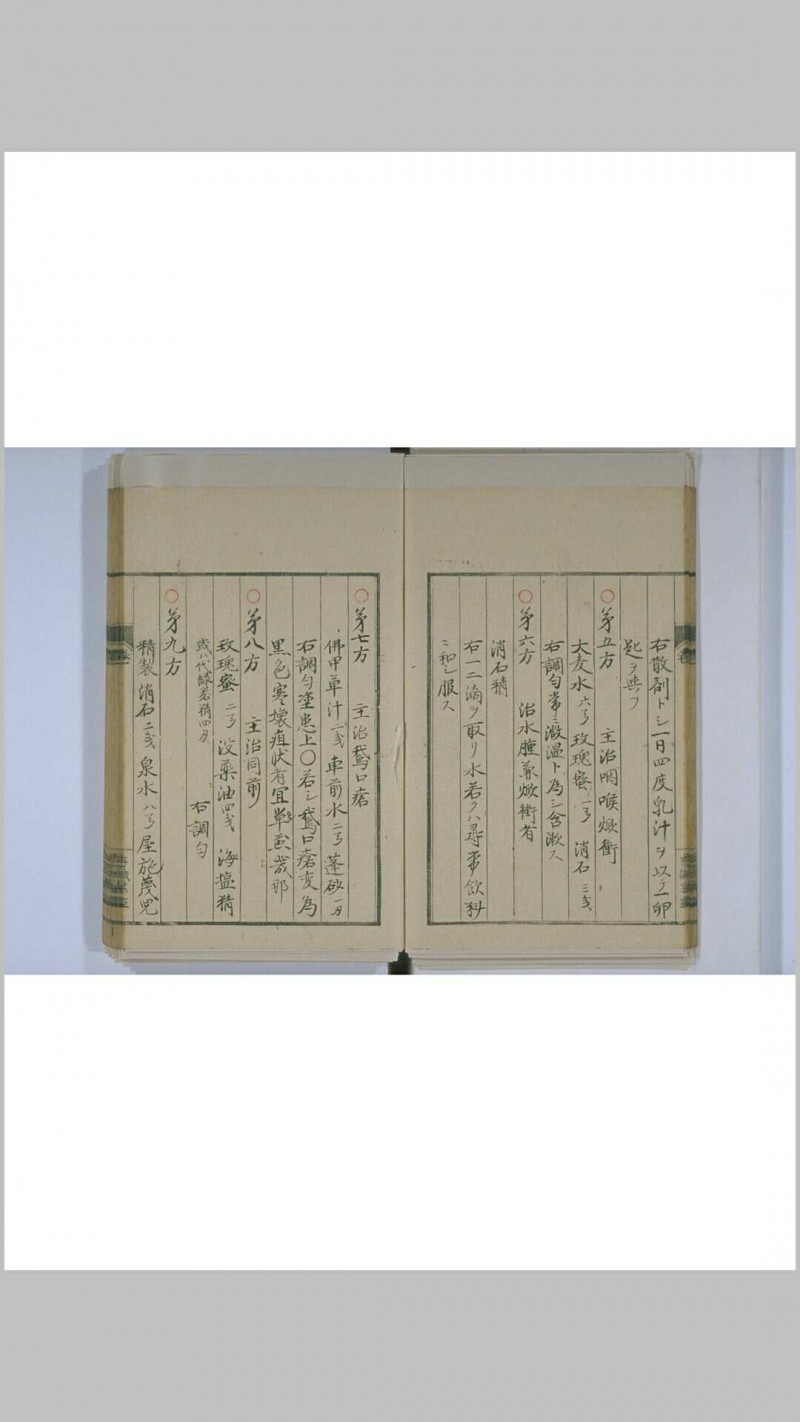 右散剤トシ一日四度乳汁ヲ以テ一卵
匙ヲ與フ
○第五方　主治咽喉焮衝
大麦水 六 玫瑰蜜 一 消石 三戔
右調勻常ニ微温ト為シ含漱ス
○第六方　治水腫兼焮衝者
消石精
右一二滴ヲ取リ水若クハ尋常飲料
ニ和シ服ス
○第七方　主治鵞口瘡
佛甲草汁 二戔 車前水 二 蓬砂
右調勻塗患上〇若シ鵞口瘡変為
黒色寒壊疽状者宜
○第八方　主治同前
玫瑰蜜 二 没薬油 四戔 海塩精
或ハ代緑礬精四
右調勻
○第九方
精製消石 二戔 泉水 八 屋施蔑児